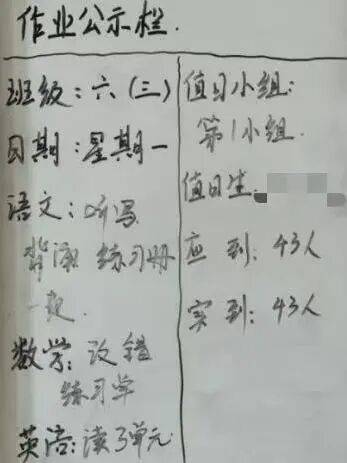 作业公示栏.
班级:六(三)
日期:星期一
语文:听写
背诵 练习册
一夜.
数学:改错
练习学
英语:读3单元
值日小组:
第1小组.
值日生:
应到:43人
实到:43人